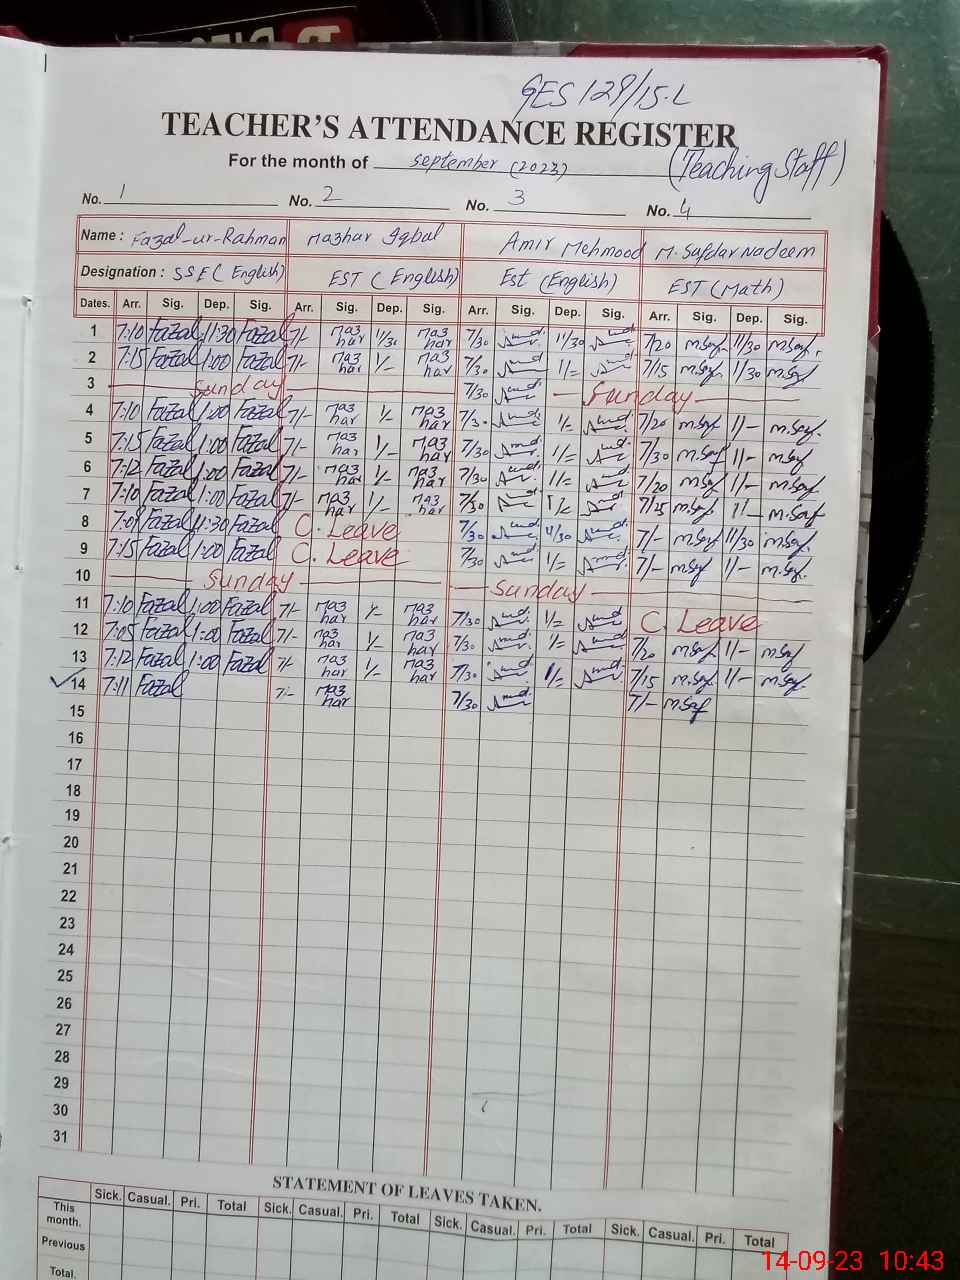 GES 129/15.L
TEACHER'S ATTENDANCE REGISTER
For the month of September (2023) (Teaching Staff)
No. 1 No. 2 No. 3 No. 4
Name : Fazal-ur-Rahman Mazhar Iqbal Amir Mehmood M. Safdar Nadeem
Designation : SSE (English) EST (English) Est (English) EST (Math)
Dates. Arr. Sig. Dep. Sig. Arr. Sig. Dep. Sig. Arr. Sig. Dep. Sig. Arr. Sig. Dep. Sig.
1 7:10 Fazal 11:30 Fazal 7/- Mazhar 11/30 Mazhar 7/30 11/30 7/20 M.Saf 11/30 M.Saf
2 7:15 Fazal 1:00 Fazal 7/- Mazhar 1/- Mazhar 7/30 1/= 7/15 M.Saf 11/30 M.Saf
3 Sunday 7/30 Sunday
4 7:10 Fazal 1:00 Fazal 7/- Mazhar 1/- Mazhar 7/30 1/= 7/20 M.Saf 1/- M.Saf
5 7:15 Fazal 1:00 Fazal 7/- Mazhar 1/- Mazhar 7/30 1/= 7/30 M.Saf 1/- M.Saf
6 7:12 Fazal 1:00 Fazal 7/- Mazhar 1/- Mazhar 7/30 1/= 7/20 M.Saf 1/- M.Saf
7 7:10 Fazal 1:00 Fazal 7/- Mazhar 1/- Mazhar 7/30 1/= 7/25 M.Saf 1/- M.Saf
8 7:09 Fazal 11:30 Fazal C. Leave 7/30 11/30 7/- M.Saf 11/30 M.Saf
9 7:15 Fazal 1:00 Fazal C. Leave 7/30 1/= 7/- M.Saf 1/- M.Saf
10 Sunday Sunday
11 7:10 Fazal 1:00 Fazal 7/- Mazhar 1/- Mazhar 7/30 1/= C. Leave
12 7:05 Fazal 1:00 Fazal 7/- Mazhar 1/- Mazhar 7/30 1/= 7/20 M.Saf 1/- M.Saf
13 7:12 Fazal 1:00 Fazal 7/- Mazhar 1/- Mazhar 7/30 1/= 7/15 M.Saf 1/- M.Saf
14 7:11 Fazal 7/- Mazhar 7/30 7/- M.Saf
15
16
17
18
19
20
21
22
23
24
25
26
27
28
29
30
31
STATEMENT OF LEAVES TAKEN.
Sick. Casual. Pri. Total Sick. Casual. Pri. Total Sick. Casual. Pri. Total Sick. Casual. Pri. Total
This month.
Previous
Total.
14-09-23 10:43